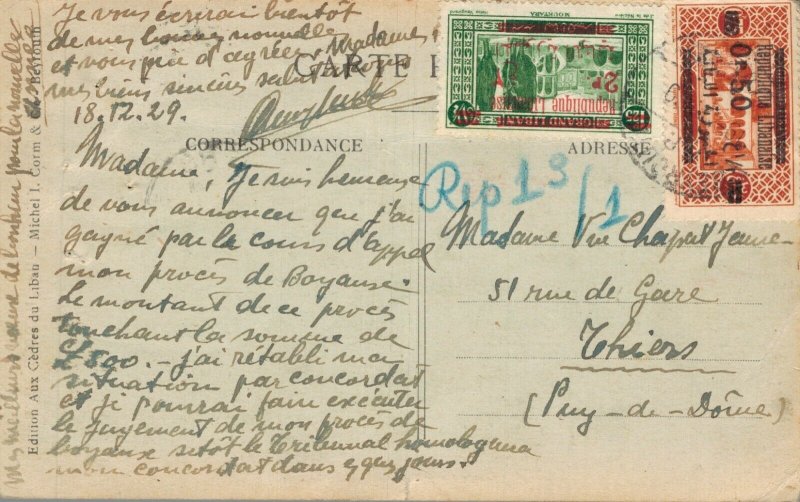 Je vous écrirai bientôt
de mes bonnes nouvelles
et vous prie d'agréer, Madame,
mes biens sincères salutations
18.12.29.
CARTE
CORRESPONDANCE
Madame, Je suis heureuse
de vous annoncer que j'ai
gagné par le cours d'appel
mon procès de Boyause.
Le montant de ce procès
touchant la somme de
£500.- j'ai rétabli ma
situation par concordat
et je pourrai faire exécuter
le jugement de mon procès de
boyaux sitôt le Tribunal homologuera
mon concordat dans qques jours.
Mes meilleurs vœux de bonheur pour la nouvelle
année
Edition Aux Cèdres du Liban — Michel I. Corm & Beyrouth
ADRESSE
Rep 13/1
Madame Vve Chapat Jeanne
51 rue de Gare
Thiers
(Puy-de-Dôme)
MOUKTARA
GRAND LIBAN
République Libanaise
2P
0P50
République Libanaise